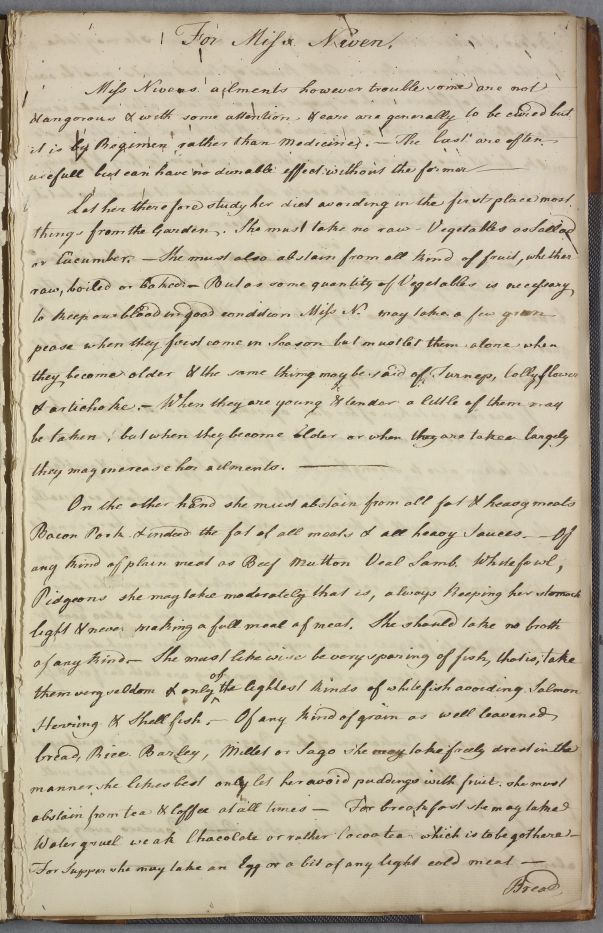 For Miss Niven.
Miss Nivens ailments however trouble some are not
dangorous & with some attention & care are generally to be cured but
it is by Regimen rather than Medicines. — The last are often
usefull but can have no durable effect without the former —
Let her therefore study her diet avoiding in the first place most
things from the Garden. She must take no raw Vegetables as Sallad
or Cucumber. — She must also abstain from all kind of fruit, whether
raw, boiled or baked. — But as some quantity of Vegetables is necessary
to keep our blood in good condition Miss N. may take a few green
pease when they first come in Season but must let them alone when
they become older & the same thing may be said of Turneps, Collyflower
& artichoke. — When they are young & tender a little of them may
be taken, but when they become older or when they are taken largely
they may increase her ailments. —
On the other hand she must abstain from all fat & heavy meats
Bacon Pork & indeed the fat of all meats & all heavy Sauces. — Of
any kind of plain meat as Beef Mutton Veal Lamb, White fowl,
Pidgeons she may take moderately that is, always keeping her stomach
light & never making a full meal of meat. She should take no broth
of any kind — She must likewise be very sparing of fish, that is, take
them very seldom & only of the lightest kinds of white fish avoiding Salmon
Herring & Shell fish. — Of any kind of grain as well leavened
bread, Rice Barley, Millet or Sago she may take freely drest in the
manner she likes best only let her avoid puddings with fruit. she must
abstain from tea & Coffee at all times — For breakfast she may take
Water gruel weak Chacolate or rather Cocoa tea which is to be got here —
For Supper she may take an Egg or a bit of any light cold meat —
Bread